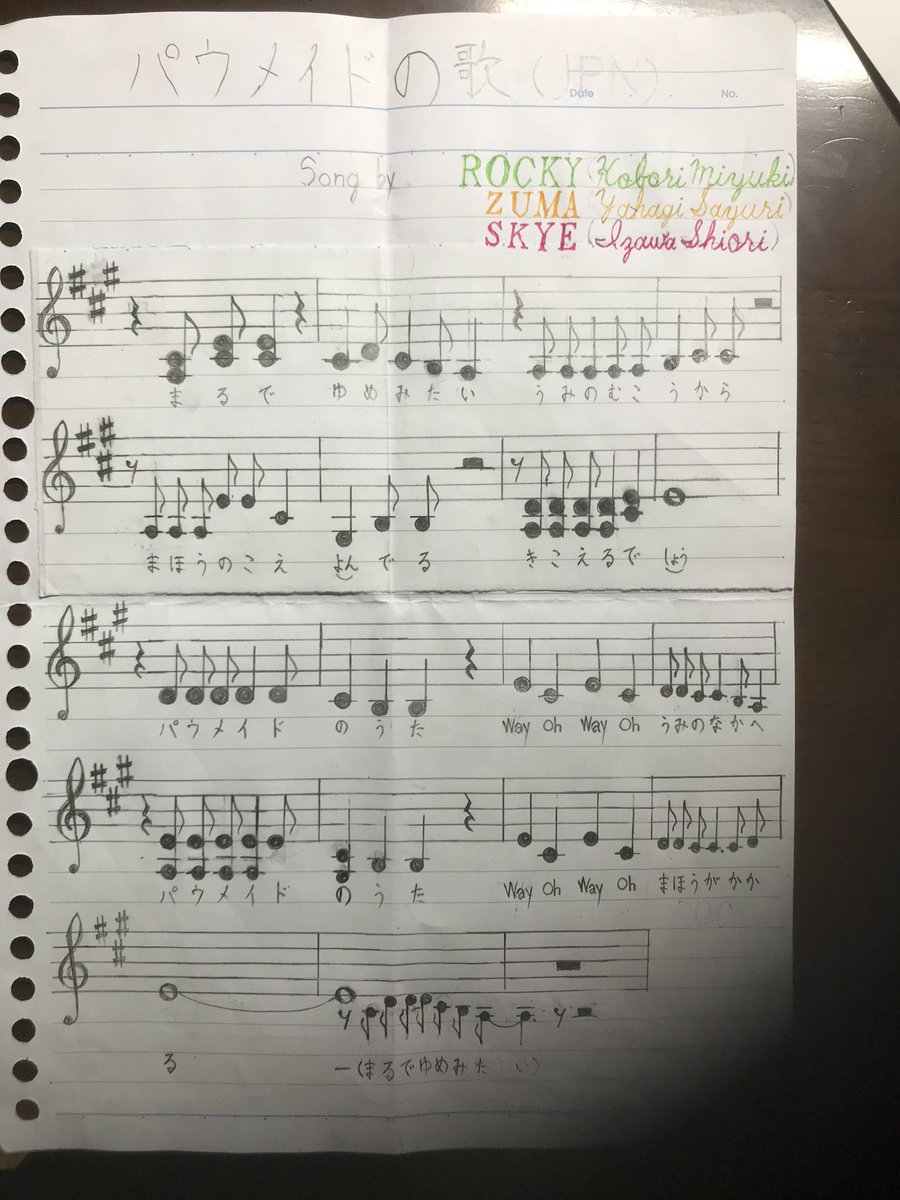 パウメイドの歌(JPN)
Date No.
Song by ROCKY (Kobori Miyuki)
ZUMA (Yahagi Sayuri)
SKYE (Izawa Shiori)
まるで ゆめみたい うみのむこ うから
まほうのこえ よんでる きこえるで しょう
パウメイド のうた Way Oh Way Oh うみのなかへ
パウメイド のうた Way Oh Way Oh まほうがかか
る ー(まるでゆめみたい)